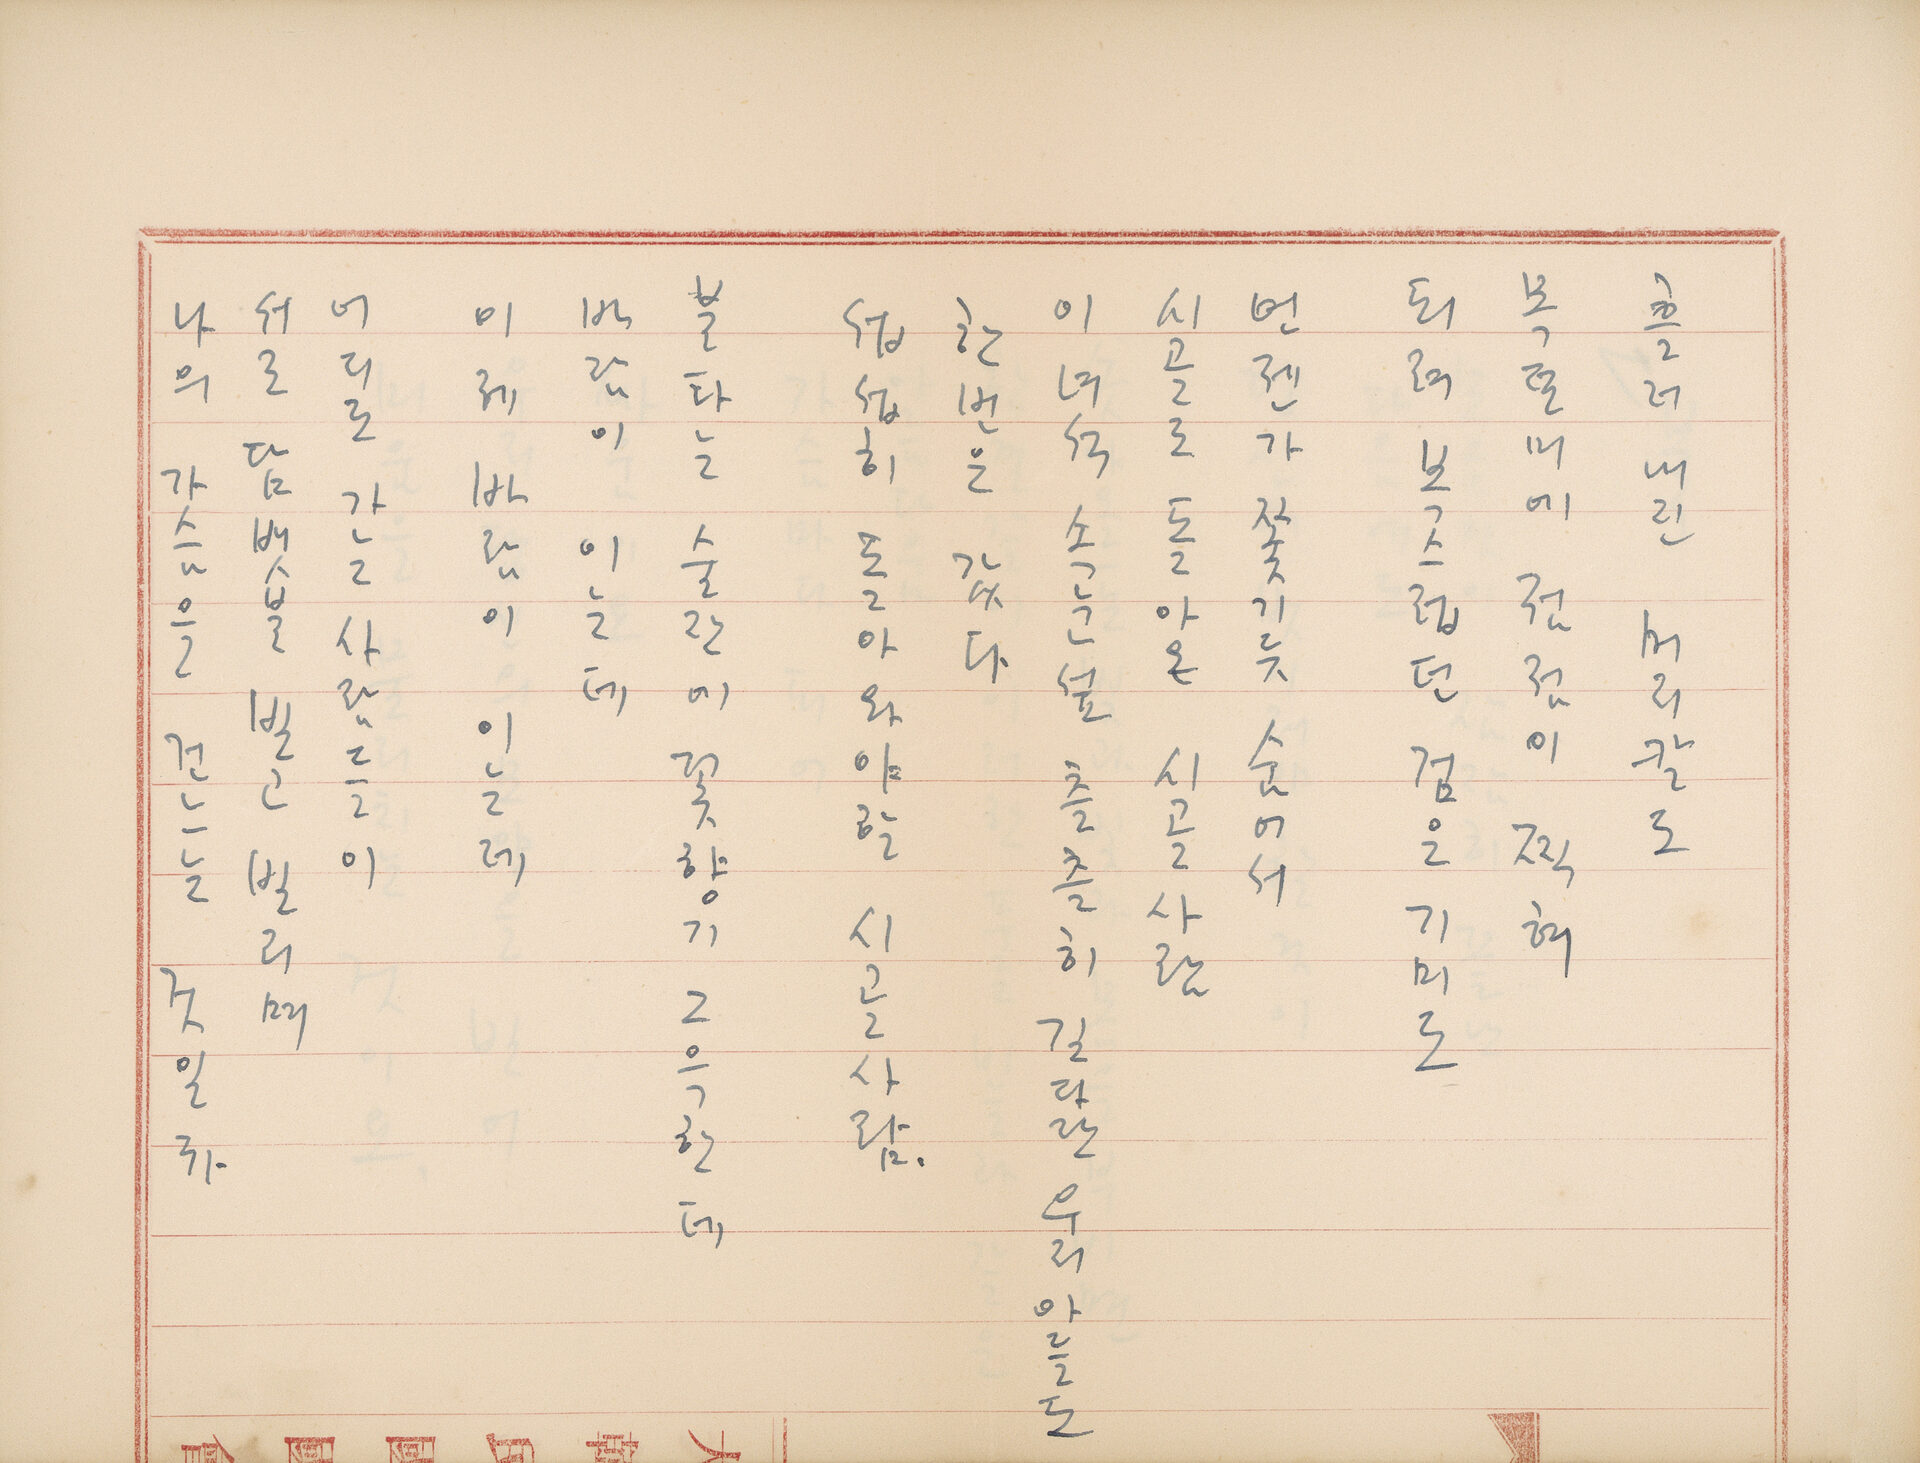 흘러 내린 머리칼도
목덜미에 점점이 찍혀
되려 복스럽던 검은 기미도
언젠가 쫓기듯 숨어서
시골로 돌아온 시골 사람
이 녀석 속눈썹 츨츨히 길다란 우리 아들도
한번은 갔다
섭섭히 돌아와야할 시골사람.
불타는 술잔에 꽃향기 그윽한데
바람이 이는데
이제 바람이 이는데
어디로 가는 사람들이
서로 담뱃불 빌고 빌리며
나의 가슴을 건느는 것일까
大韓民國國會